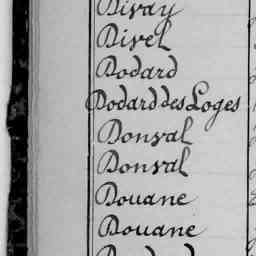 Divay
Divel
Dodard
Dodard des Loges
Donval
Donval
Douane
Douane